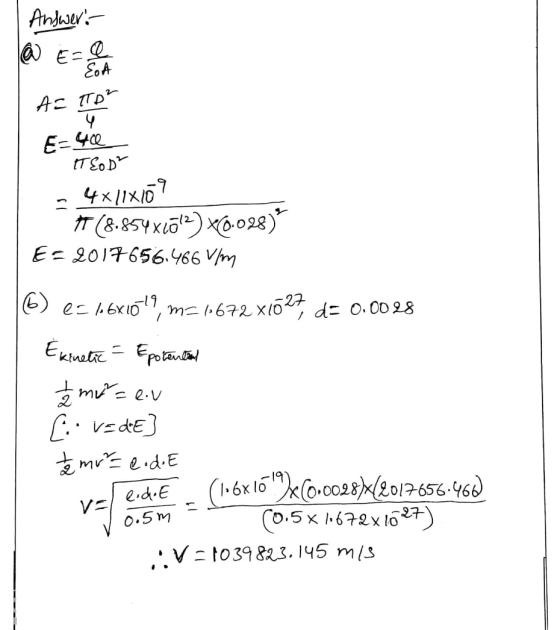 Answer:-
(a) E = Q/ε₀A
A = πD²/4
E = 4Q/πε₀D²
= 4×11×10⁻⁹/π(8.854×10⁻¹²)×(0.028)²
E = 2017656.466 V/m
(b) e = 1.6×10⁻¹⁹, m = 1.672×10⁻²⁷, d = 0.0028
E kinetic = E potential
1/2 mv² = e.v
[∵ v = dE]
1/2 mv² = e.d.E
V = √(e.d.E/0.5m) = (1.6×10⁻¹⁹)×(0.0028)×(2017656.466)/(0.5×1.672×10⁻²⁷)
∴ V = 1039823.145 m/s